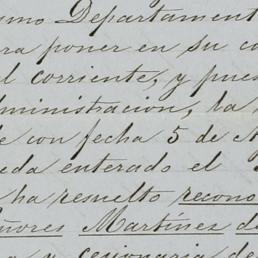 smo Departament
ra poner en su co
l corriente, y pues
dministracion, la
e con fecha 5 de A
eda enterado el
ha resuelto recono
ñores Martínez de
a y cesionaria de